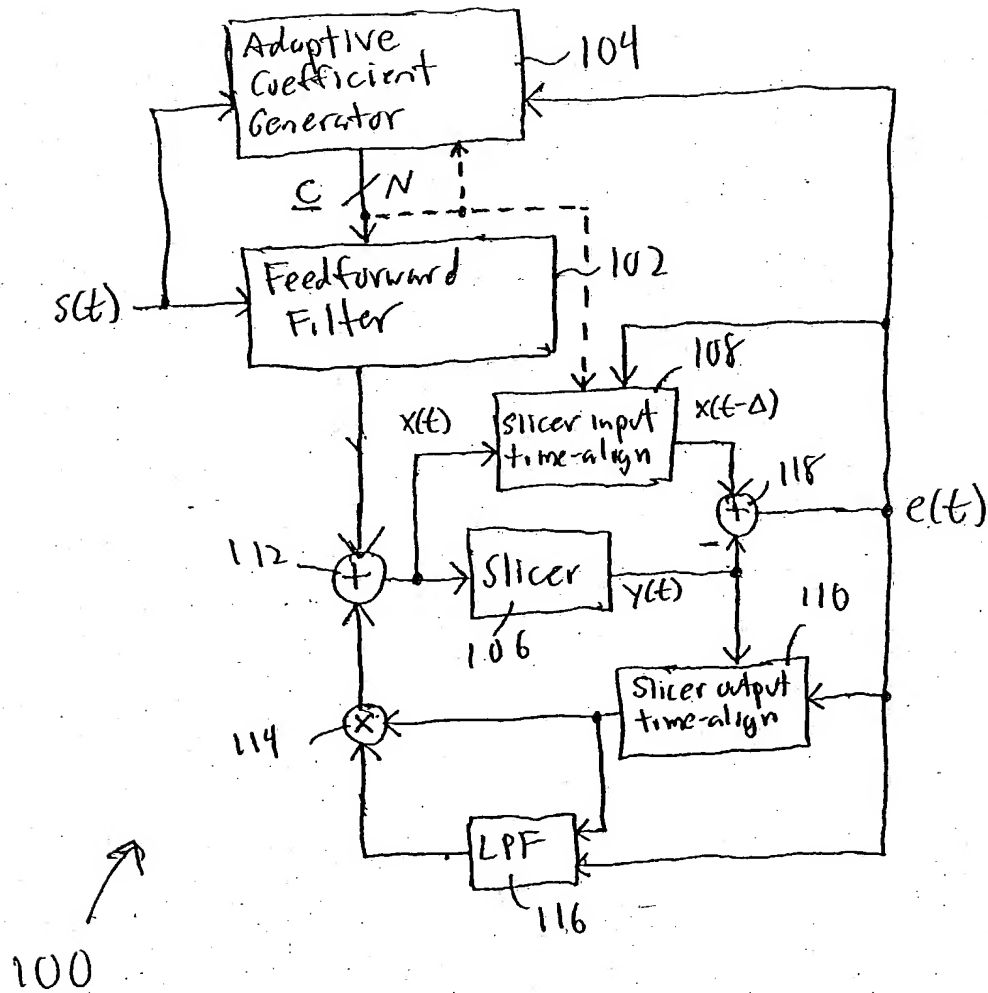 Adaptive
Coefficient
Generator
104
C
N
s(t)
Feedforward
Filter
102
108
x(t)
Slicer input
time-align
x(t-Δ)
118
+
e(t)
-
112
+
Slicer
y(t)
106
110
Slicer output
time-align
114
×
LPF
116
100